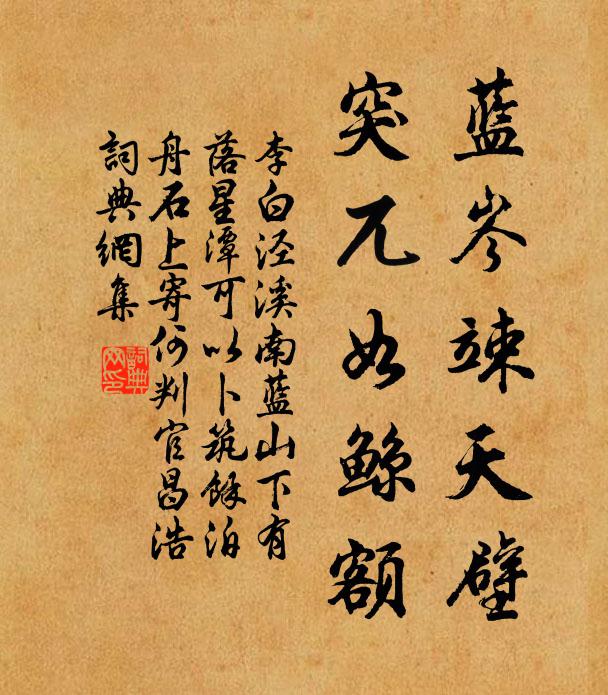 藍岑竦天壁
突兀如鯨額
李白涇溪南藍山下有
落星潭可以卜筑餘泊
舟石上寄何判官昌浩
詞典網集
詞典网印